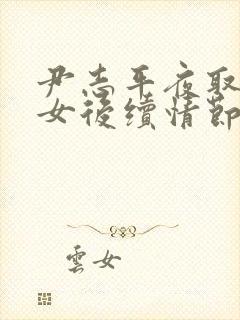 尹志平夜取
女後續情節
雲女